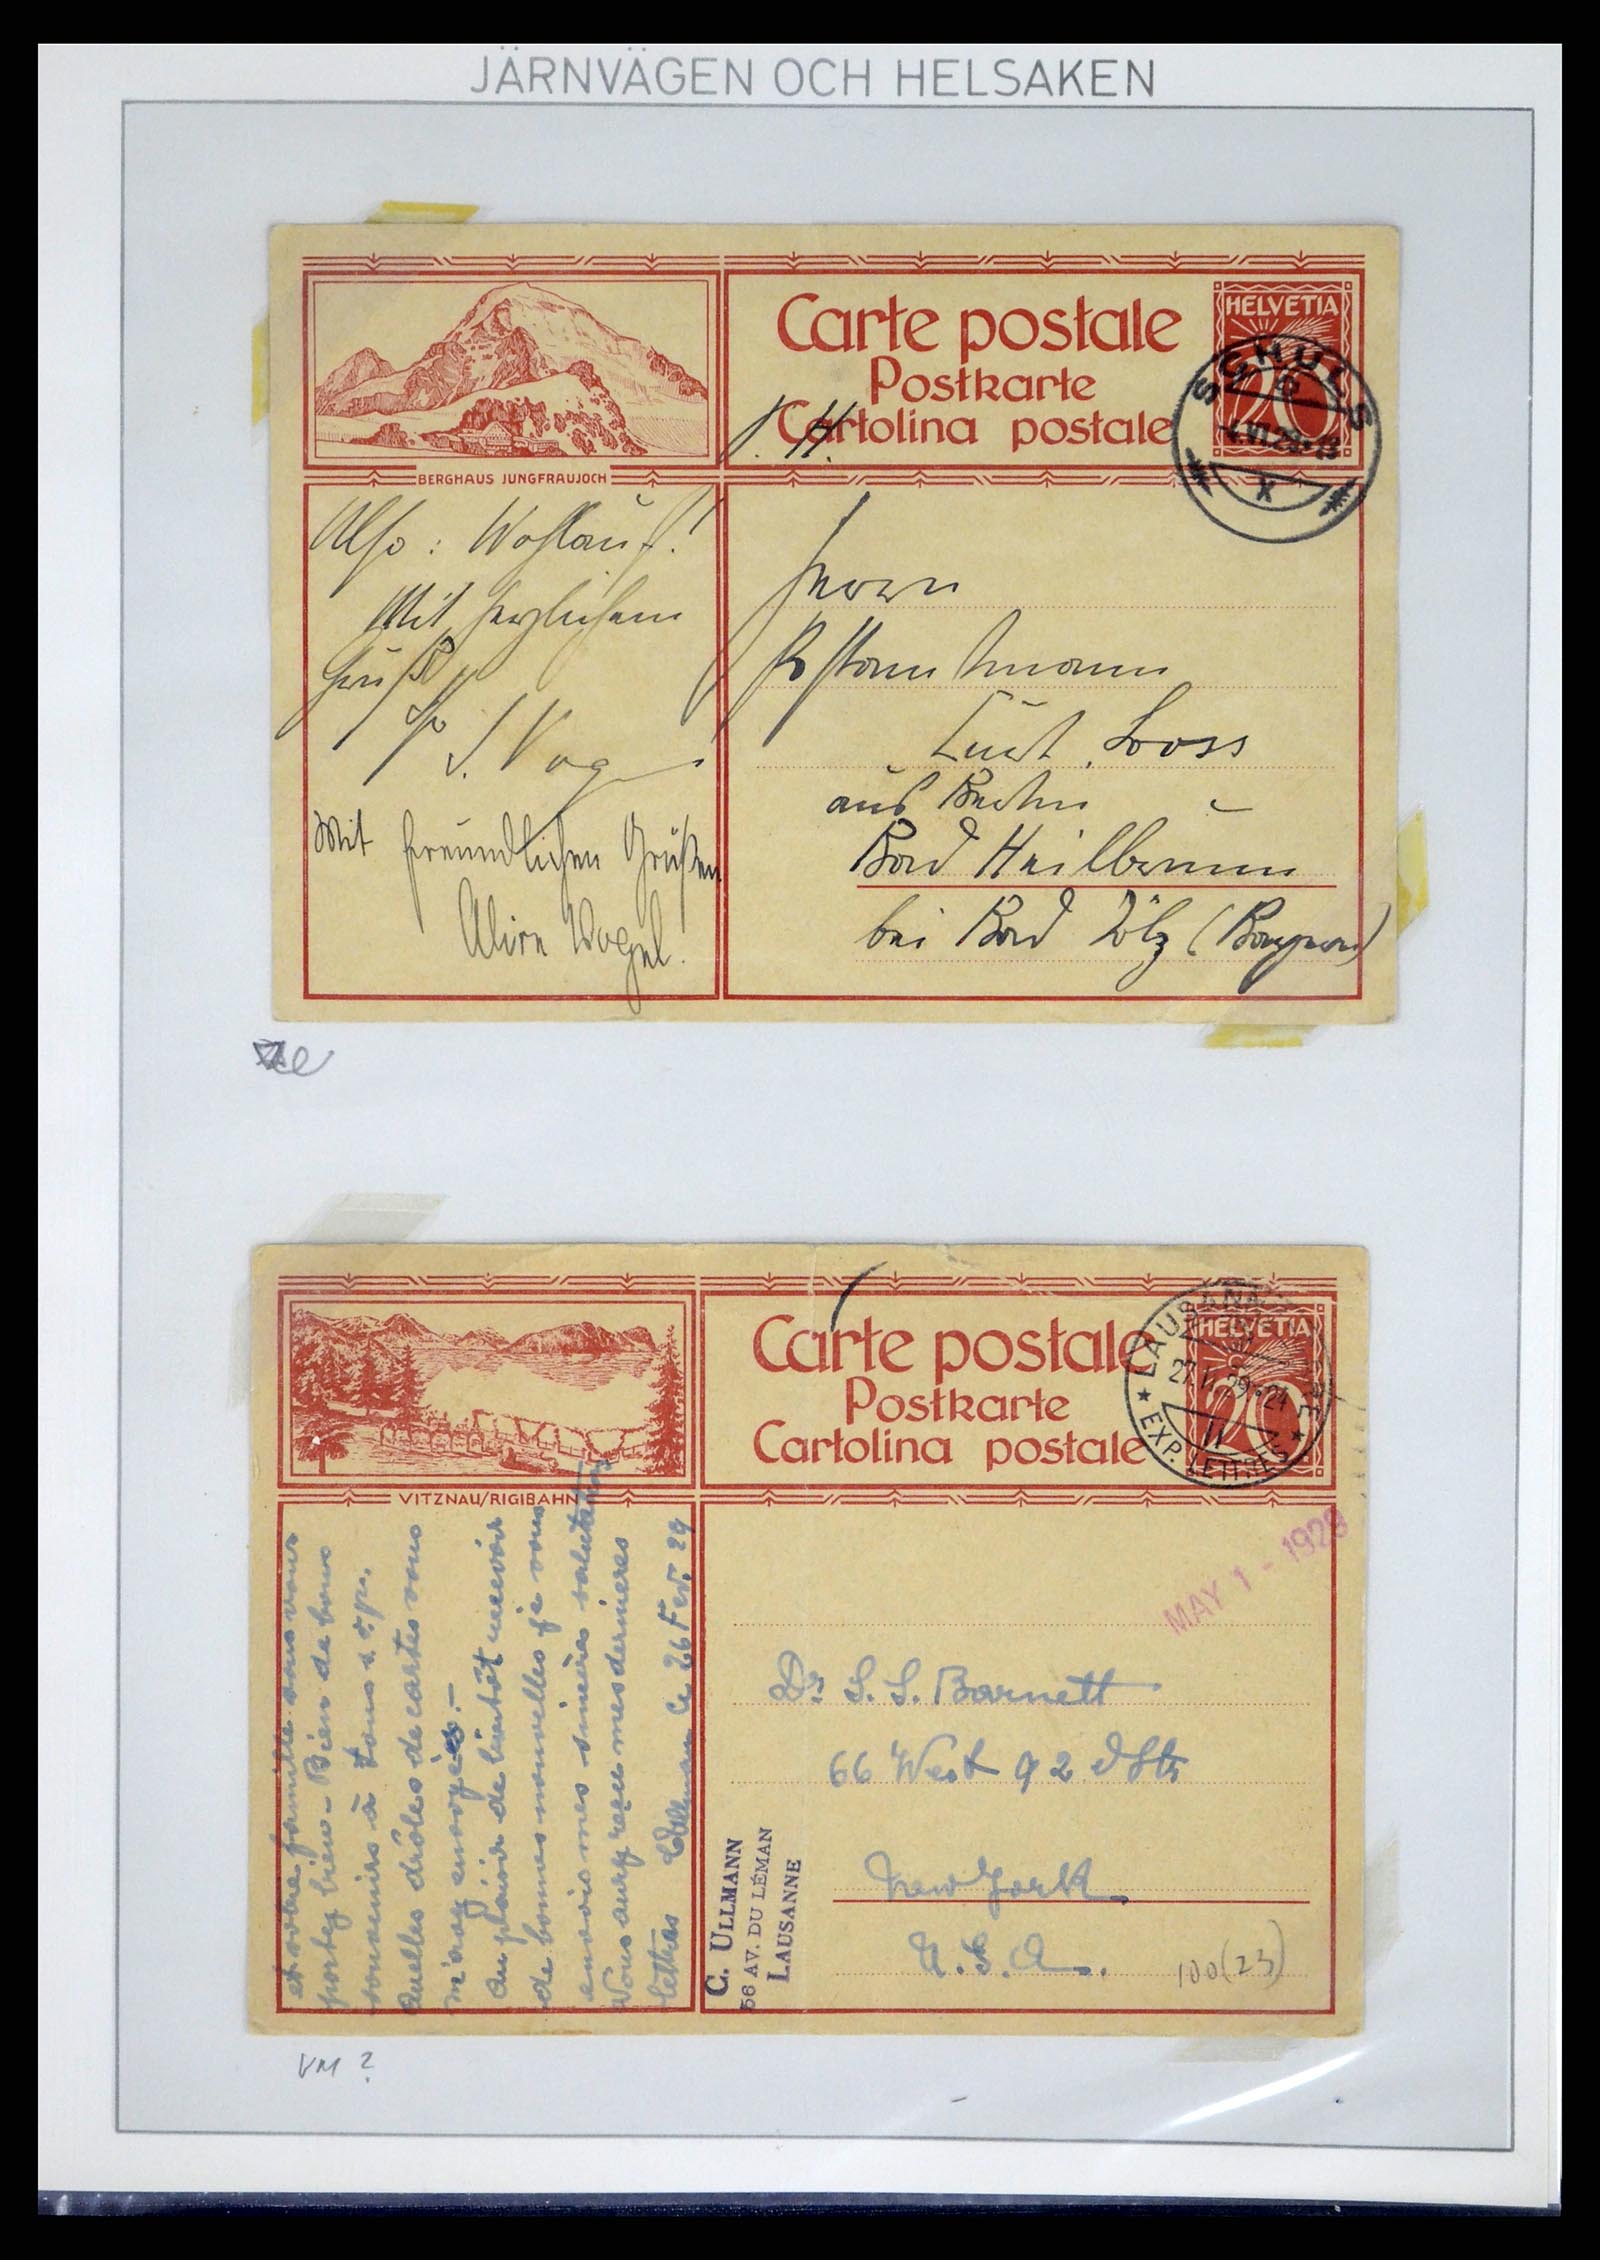 JÄRNVÄGEN OCH HELSAKEN
Carte postale
Postkarte
Cartolina postale
HELVETIA
20
SCHULS
BERGHAUS JUNGFRAUJOCH
Also: Wohlauf!
Mit herzlichem
Gruß
Mit freundlichen Grüßen
Vogel.
Herrn
Loss
aus Berlin
Bad Heilbrunn
bei Bad Tölz (Bayern)
Carte postale
Postkarte
Cartolina postale
HELVETIA
20
LAUSANNE
27.V.29.24
EXP. LETTRES
VITZNAU/RIGIBAHN
MAY 1 - 1929
et votre famille vous vous
portez bien - Bien de bons
souvenirs à tous s.v.p.
Quelles drôles de cartes vous
m'avez envoyées.-
Au plaisir de bientôt recevoir
de bonnes nouvelles je vous
envoie mes sincères salutations
Vous avez reçu mes dernières
lettres Ullmann Ce 26 Fev. 29
Dr. S. S. Barnett
66 West 92d Str
New York
U.S.A.
C. ULLMANN
56 AV. DU LÉMAN
LAUSANNE
100(23)
VM ?